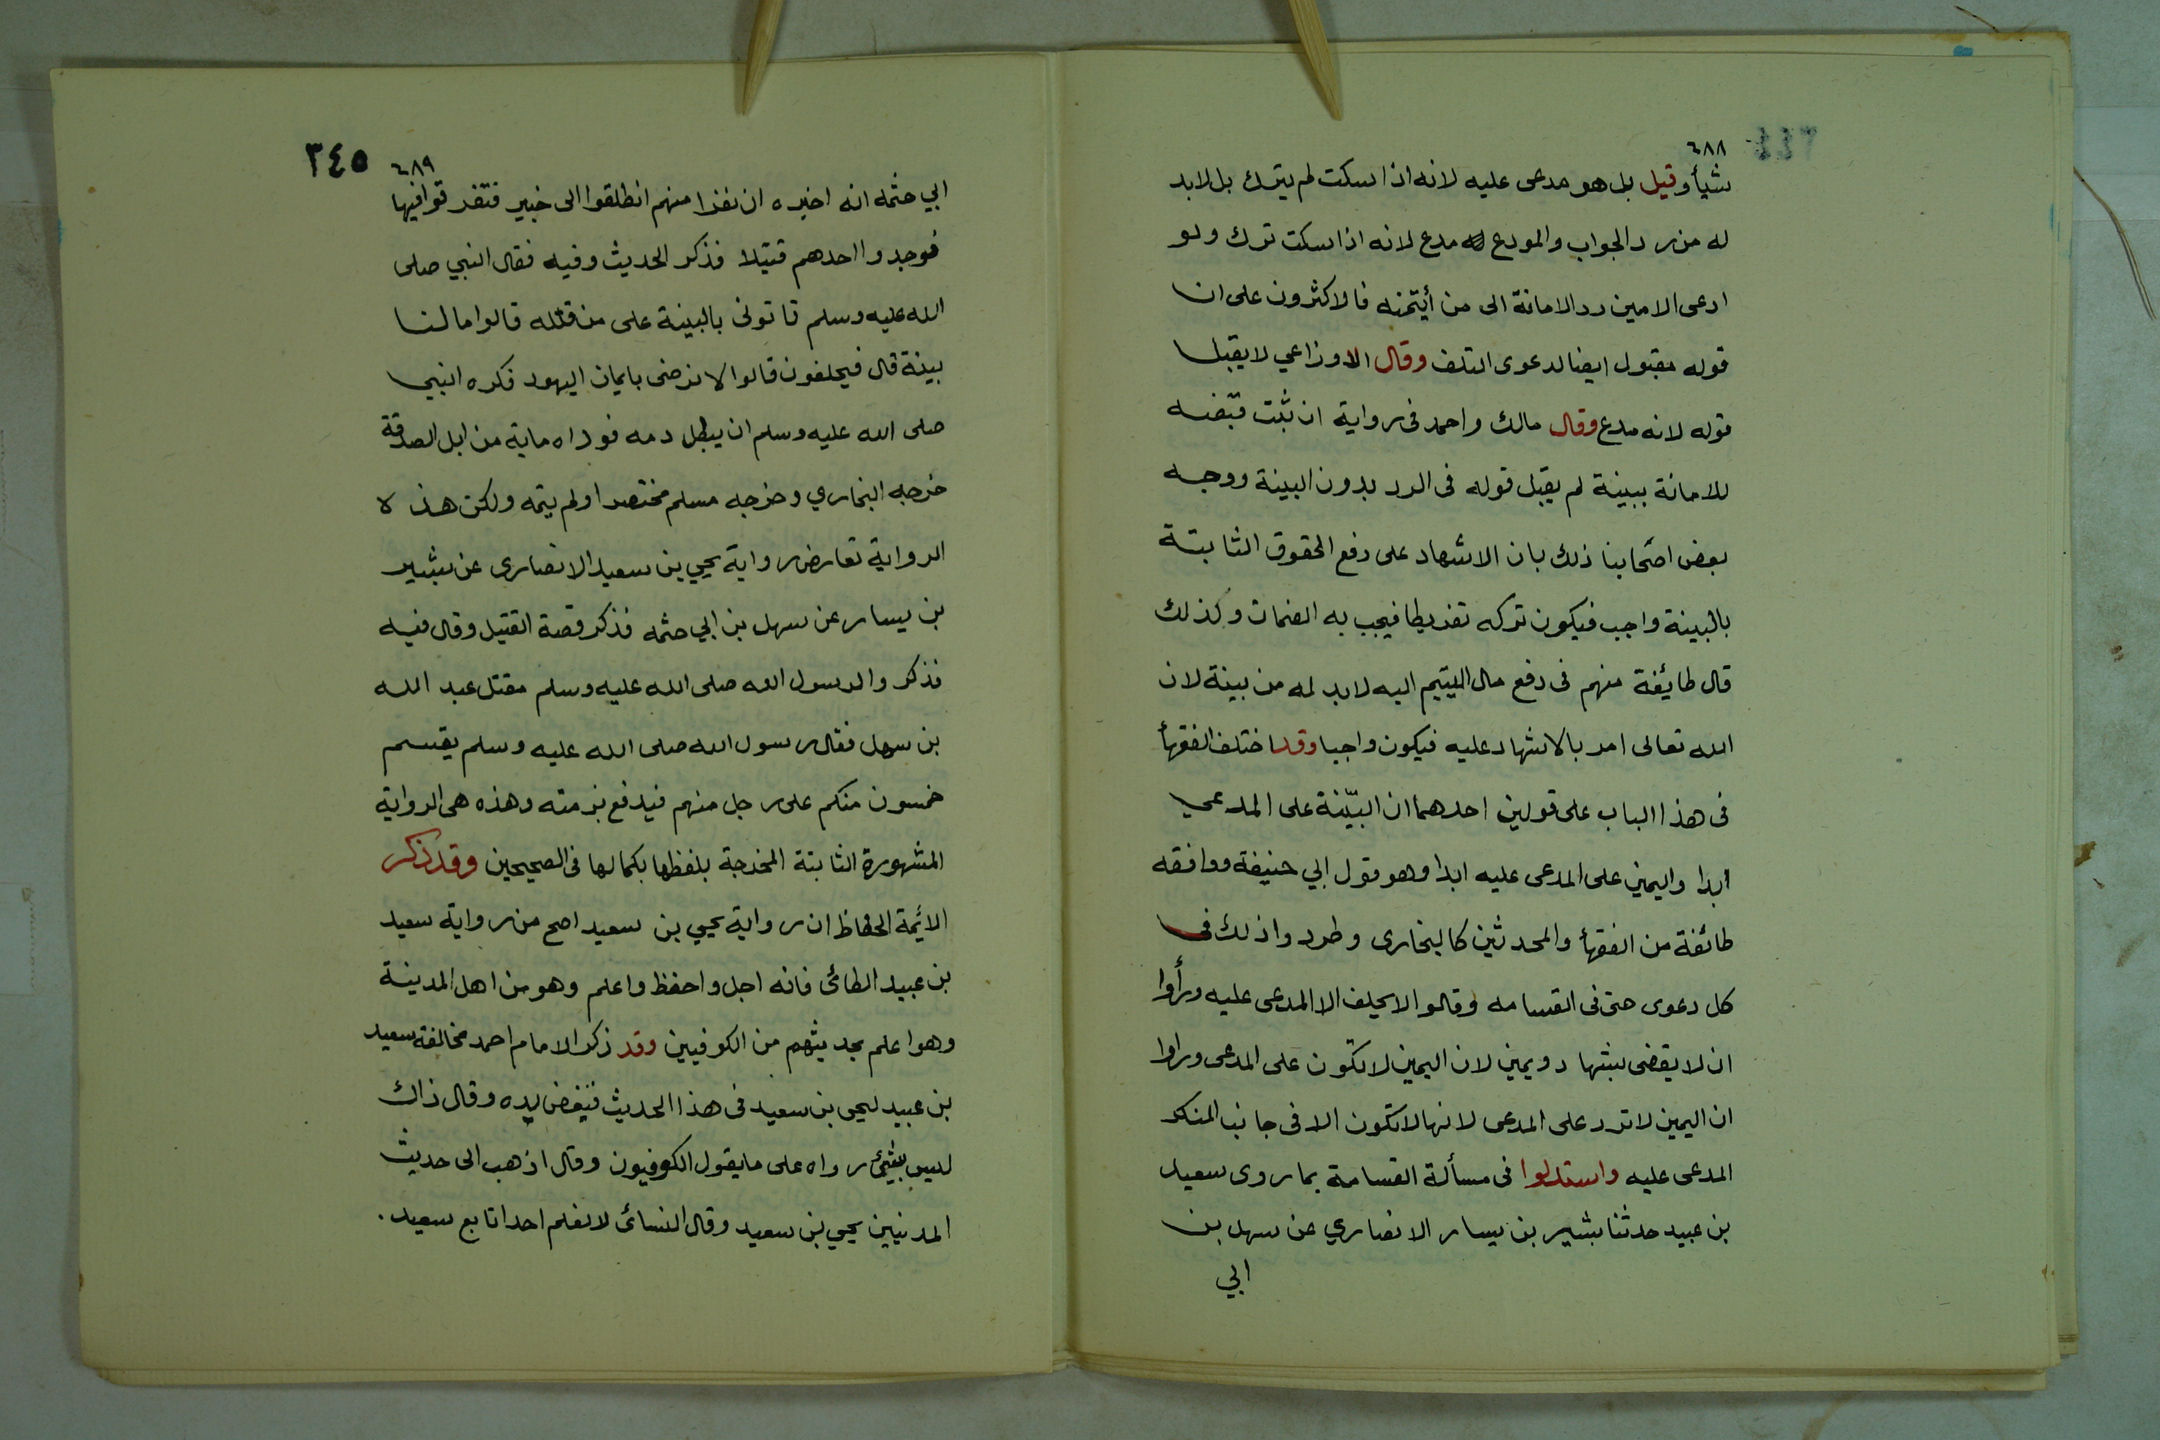 ٦٨٨
شيأ وقيل بل هو مدعى عليه لانه اذا سكت لم يترك بل لابد
له من رد الجواب والمودع مدع لانه اذا سكت ترك ولو
ادعى الامين رد الامانة الى من أيتمنه فالاكثرون على ان
قوله مقبول ايضا لدعوى التلف وقال الاوزاعي لا يقبل
قوله لانه مدع وقال مالك واحمد فى رواية ان ثبت قبضه
للامانة ببينة لم يقبل قوله فى الرد بدون البينة ووجه
بعض اصحابنا ذلك بان الاشهاد على دفع الحقوق الثابتة
بالبينة واجب فيكون تركه تفريطا فيجب به الضمان وكذلك
قال طائفة منهم فى دفع مال اليتيم اليه لابد له من بينة لان
الله تعالى امر بالاشهاد عليه فيكون واجبا وقد اختلف الفقهأ
فى هذا الباب على قولين احدهما ان البيّنة على المدعي
أبدا واليمين على المدعى عليه ابدا وهو قول ابي حنيفة ووافقه
طائفة من الفقهأ والمحدثين كالبخارى وطردوا ذلك في
كل دعوى حتى فى القسامه وقالوا لا يحلف الا المدعى عليه ورأوا
ان لا يقضى بشهاد ويمين لان اليمين لا تكون على المدعى وراوا
ان اليمين لا ترد على المدعى لانها لا تكون الا فى جانب المنكر
المدعى عليه واستدلوا فى مسألة القسامة بما روى سعيد
بن عبيد حدثنا بشير بن يسار الانصاري عن سهل بن
ابي
٣٤٥
٦٨٩
ابي حثمه انه اخبره ان نفرا منهم انطلقوا الى خيبر فتفرقوا فيها
فوجدوا احدهم قتيلا فذكر الحديث وفيه فقال النبي صلى
الله عليه وسلم تاتونى بالبينة على من قتله قالوا ما لنا
بينة قال فيحلفون قالوا لا نرضى بايمان اليهود فكره النبي
صلى الله عليه وسلم ان يبطل دمه فوداه ماية من ابل الصدقة
خرجه البخاري وخرجه مسلم مختصرا ولم يتمه ولكن هذه
الرواية تعارض رواية يحيي بن سعيد الانصارى عن بشير
بن يسار عن سهل بن ابي حثمه فذكر قصة القتيل وقال فيه
فذكروا لرسول الله صلى الله عليه وسلم مقتل عبد الله
بن سهل فقال رسول الله صلى الله عليه وسلم يقسم
خمسون منكم على رجل منهم فيدفع برمته وهذه هى الرواية
المشهورة الثابتة المخرجة بلفظها بكمالها فى الصحيحين وقد ذكر
الائمة الحفاظ ان رواية يحيي بن سعيد اصح من رواية سعيد
بن عبيد الطائى فانه اجل واحفظ واعلم وهو من اهل المدينة
وهو اعلم بحديثهم من الكوفيين وقد ذكر الامام احمد مخالفة سعيد
بن عبيد ليحى بن سعيد فى هذا الحديث فنفض يده وقال ذاك
ليس بشئ رواه على ما يقول الكوفيون وقال اذهب الى حديث
المدنيين يحيي بن سعيد وقال النسائ لا نعلم احدا تابع سعيد.